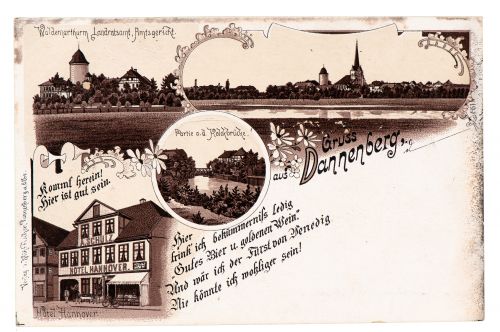 Waldemarthurm, Landratsamt, Amtsgericht.
Partie a. d. Holzbrücke.
Gruss
aus Dannenberg,
Kommt herein!
Hier ist gut sein.
SCHULZ
HOTEL HANNOVER.
Hotel Hannover.
Hier
trink' ich bekümmerniß ledig
„Gutes Bier u. goldenen Wein."
Und wär ich der Fürst von Venedig
Nie könnte ich wohliger sein!
Verlag v.